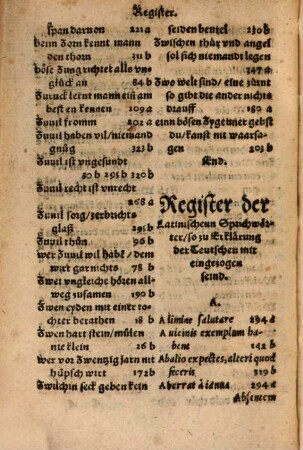 Register.
span darnon 221 a
beim Zorn kennt mann
den thorn 31 b
böse Zung richtet alls vn-
glück an 82 b
Zuruck lernt mann ein am
besten kennen 209 a
Zuuil fromm 202 a
Zuuil haben vil/niemand
gnüg 32 b
Zuuil ist vngesundt
80 b 295 b 320 b
Zuuil recht ist vnrecht
268 a
Zuuil sorg/zerbrichts
glaß 295 b
Zuuil thün 96 b
wer Zuuil wil habē/dem
wirt gar nichts 78 b
Zwei vngleiche hözen all-
weg zusamen 190 b
Zwen eyden mit einer to-
chter berathen 18 b
Zwen hart stein/mülen
nie klein 16 b
wer vor Zwentzig jarn nit
hüpsch wirt 172 b
Zwilchin seck geben kein
seiden beutel 230 b
Zwischen thür vnd angel
sol sich niemand legen
347 a
Zwo welt sind/eine zürnt
so gibt die ander nichts
drauff 180 a
einn bösen Zygeuner gebst
du/kanst mit waarsa-
gen 203 b
End.
Register der
Latinischenn Spruchwör-
ter/so zu Erklärung
der Teutschen mit
eingezogen
seind.
A.
A limine salutare 234 a
A uicinis exemplum ha-
bene 142 b
Ab alio expectes, alteri quod
feceris 319 b
Aberrat à ianua 294 a
Absentem